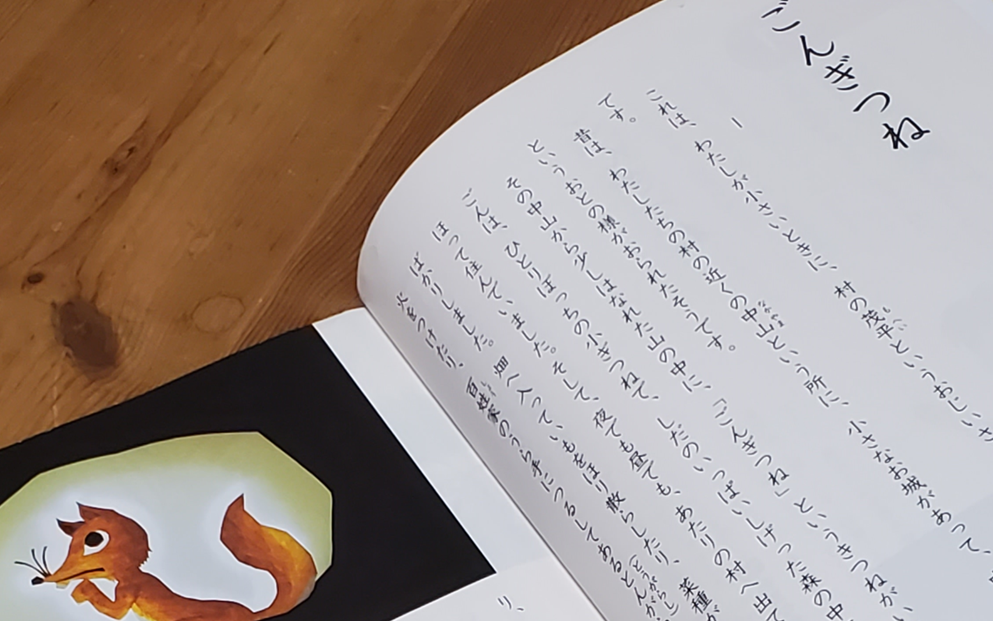 ごんぎつね
一
これは、わたしが小さいときに、村の茂平というおじいさ
です。
昔は、わたしたちの村の近くの中山という所に、小さなお城があって、
というおとの様がおられたそうです。
その中山から少しはなれた山の中に、「ごんぎつね」というきつねがい
ごんは、ひとりぼっちの小ぎつねで、しだのいっぱいしげった森の中
ほって住んでいました。そして、夜でも昼でも、あたりの村へ出て
ばかりしました。畑へ入っていもをほり散らしたり、菜種が
火をつけたり、百姓家のうら手につるしてあるとんが
り、